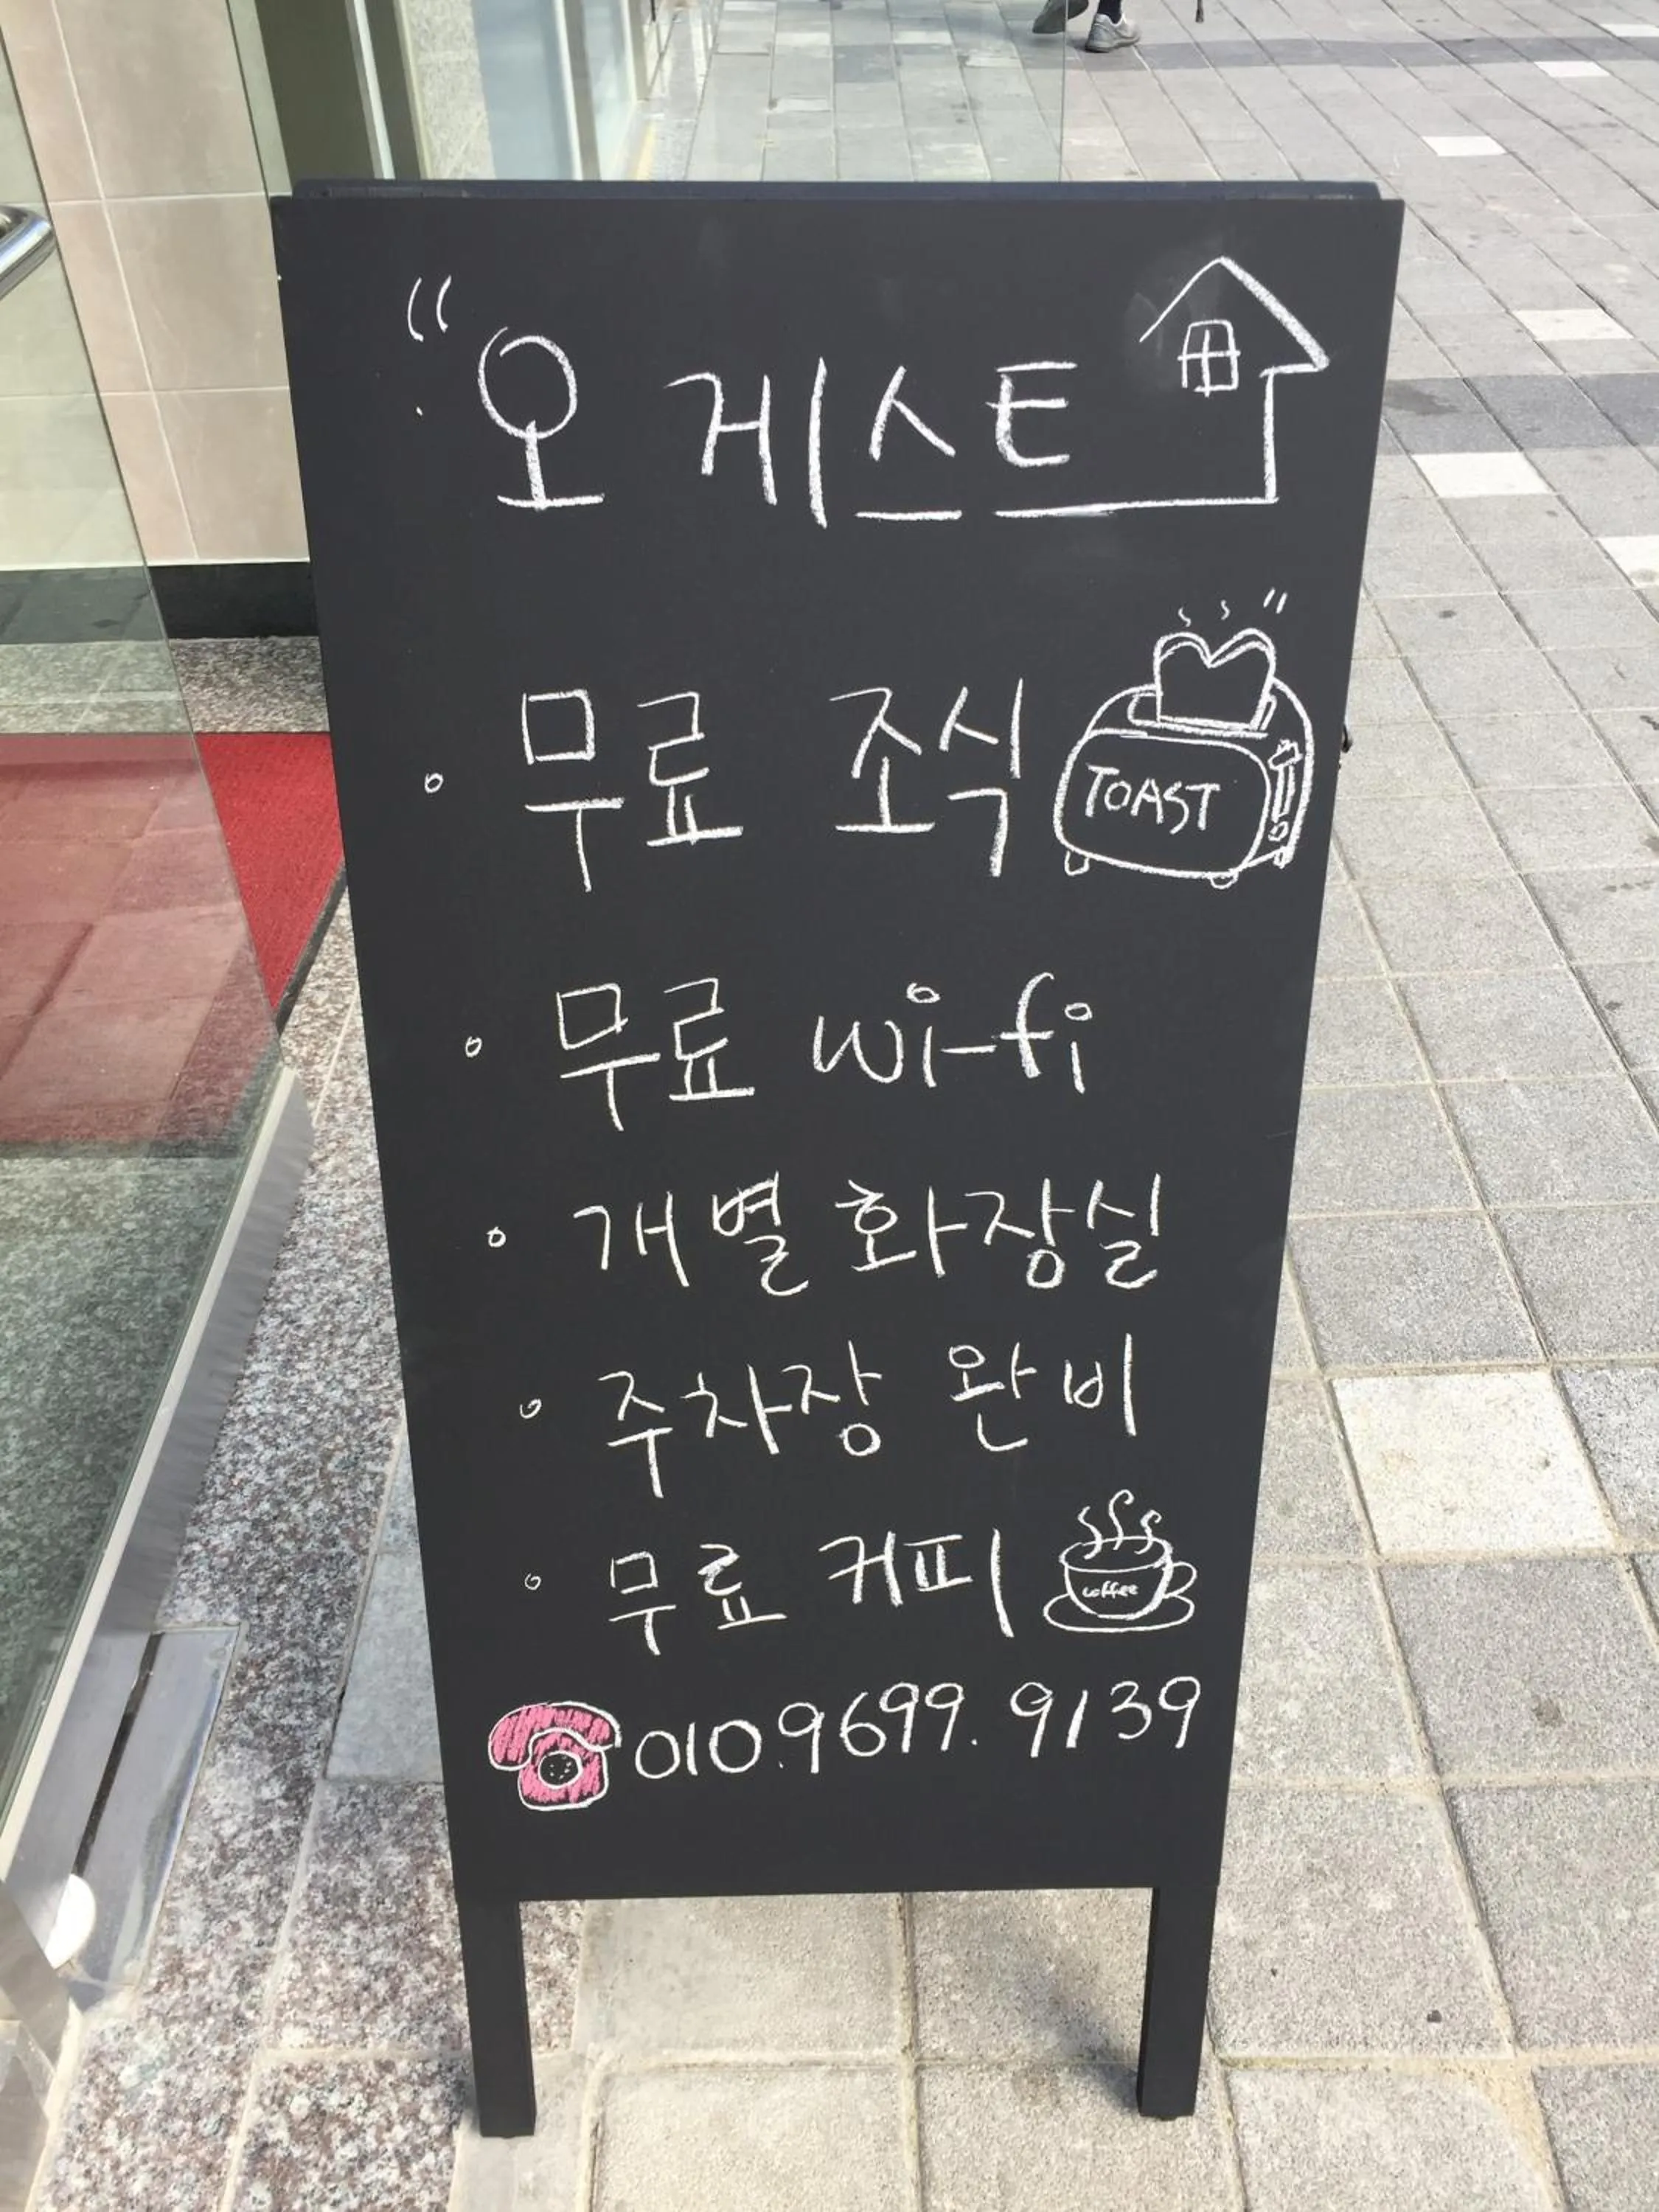 "오 게스트
· 무료 조식 TOAST
· 무료 wi-fi
· 개별 화장실
· 주차장 완비
· 무료 커피 coffee
010.9699.9139